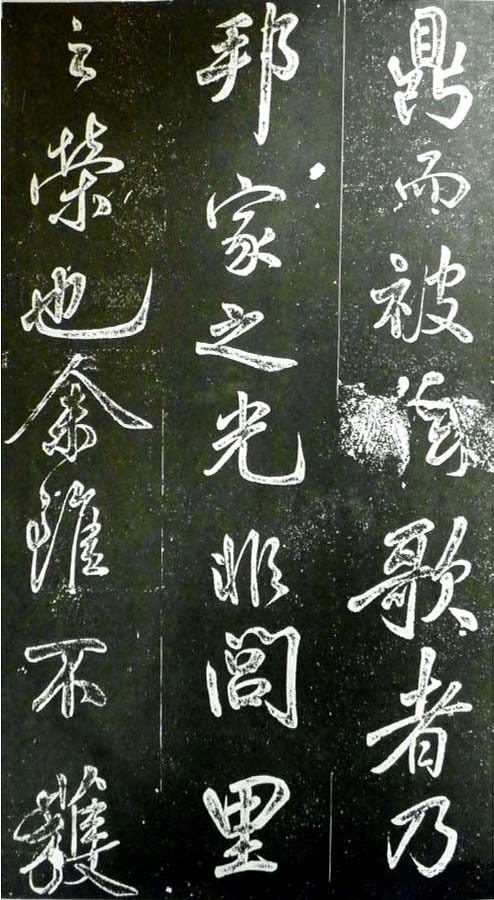 鼎而被弦歌者乃
邦家之光非閭里
之榮也余雖不獲